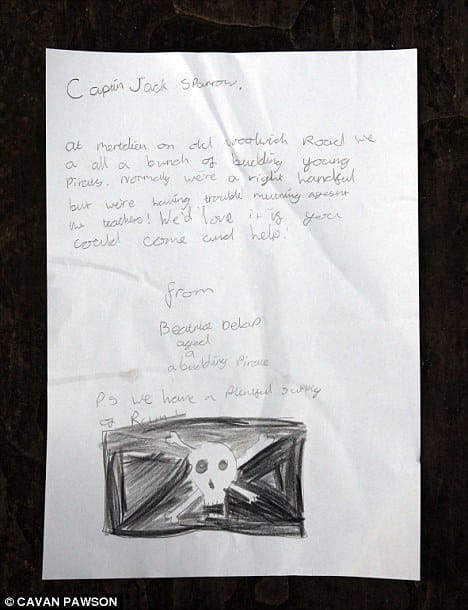 Captin Jack Sparrow,
At meridien on old woolwich Road we
a all a bunch of budding young
Pirates. Normally we're a right handful
but we're having trouble mutining agenst
the teachers! We'd love it if you
could come and help!
from
Beatrice Delap
aged
9
a budding Pirate
Ps we have a plentiful supply
of
© CAVAN PAWSON